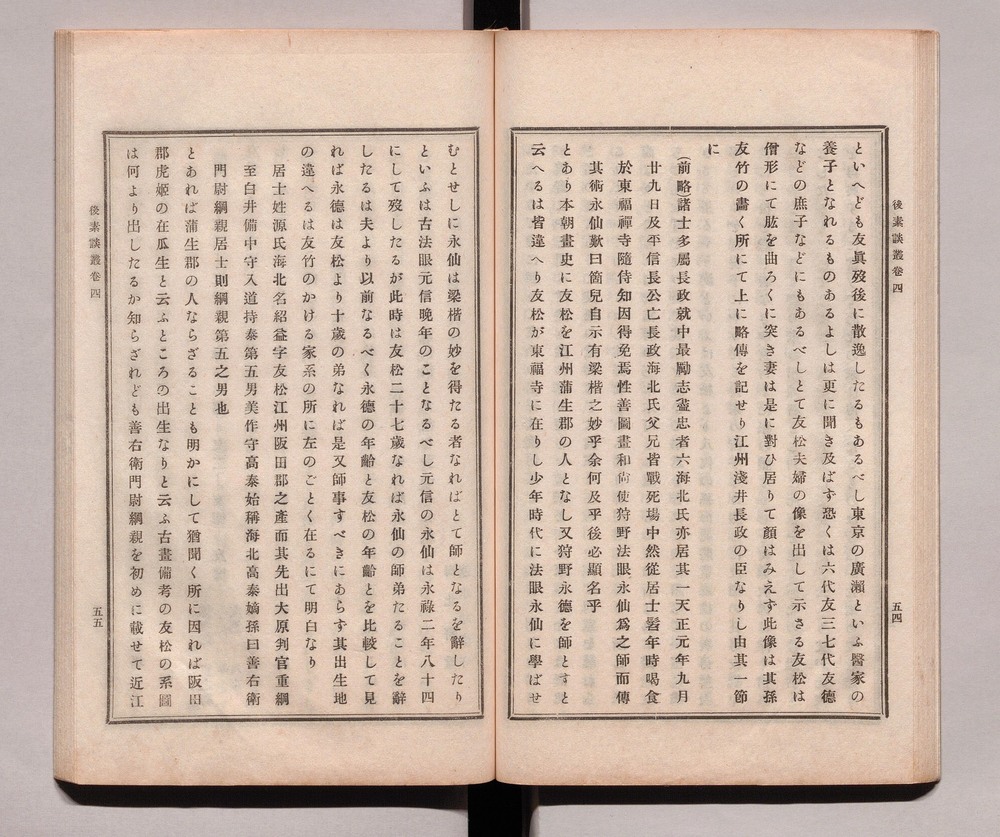 後素談叢卷四
五四
といへども友眞歿後に散逸したるもあるべし東京の廣瀨といふ醫家の
養子となれるものあるよしは更に聞き及ばず恐くは六代友三七代友德
などの庶子などにもあるべしとて友松夫婦の像を出して示さる友松は
僧形にて肱を曲ろくに突き妻は是に對ひ居りて顏はみえず此像は其孫
友竹の畵く所にて上に略傳を記せり江州淺井長政の臣なりし由其一節
に
(前略)諸士多屬長政就中最勵志盡忠者六海北氏亦居其一天正元年九月
廿九日及平信長公亡長政海北氏父兄皆戰死場中然從居士髫年時喝食
於東福禪寺隨侍知因得免焉性善圖畫和尙使狩野法眼永仙爲之師而傳
其術永仙歎曰箇兒自示有梁楷之妙乎余何及乎後必顯名乎
とあり本朝畫史に友松を江州蒲生郡の人となし又狩野永德を師とすと
云へるは皆違へり友松が東福寺に在りし少年時代に法眼永仙に學ばせ
むとせしに永仙は梁楷の妙を得たる者なればとて師となるを辭したり
といふは古法眼元信晩年のことなるべし元信の永仙は永祿二年八十四
にして歿したるが此時は友松二十七歲なれば永仙の師弟たることを辭
したるは夫より以前なるべく永德の年齡と友松の年齡とを比較して見
れば永德は友松より十歲の弟なれば是又師事すべきにあらず其出生地
の違へるは友竹のかける家系の所に左のごとく在るにて明白なり
居士姓源氏海北名紹益字友松江州阪田郡之產而其先出大原判官重綱
至白井備中守入道持泰第五男美作守高泰始稱海北高泰嫡孫曰善右衛
門尉綱親居士則綱親第五之男也
とあれば蒲生郡の人ならざることも明かにして猶聞く所に因れば阪田
郡虎姬の在瓜生と云ふところの出生なりと云ふ古畫備考の友松の系圖
は何より出したるか知らざれども善右衛門尉綱親を初めに載せて近江
後素談叢卷四
五五